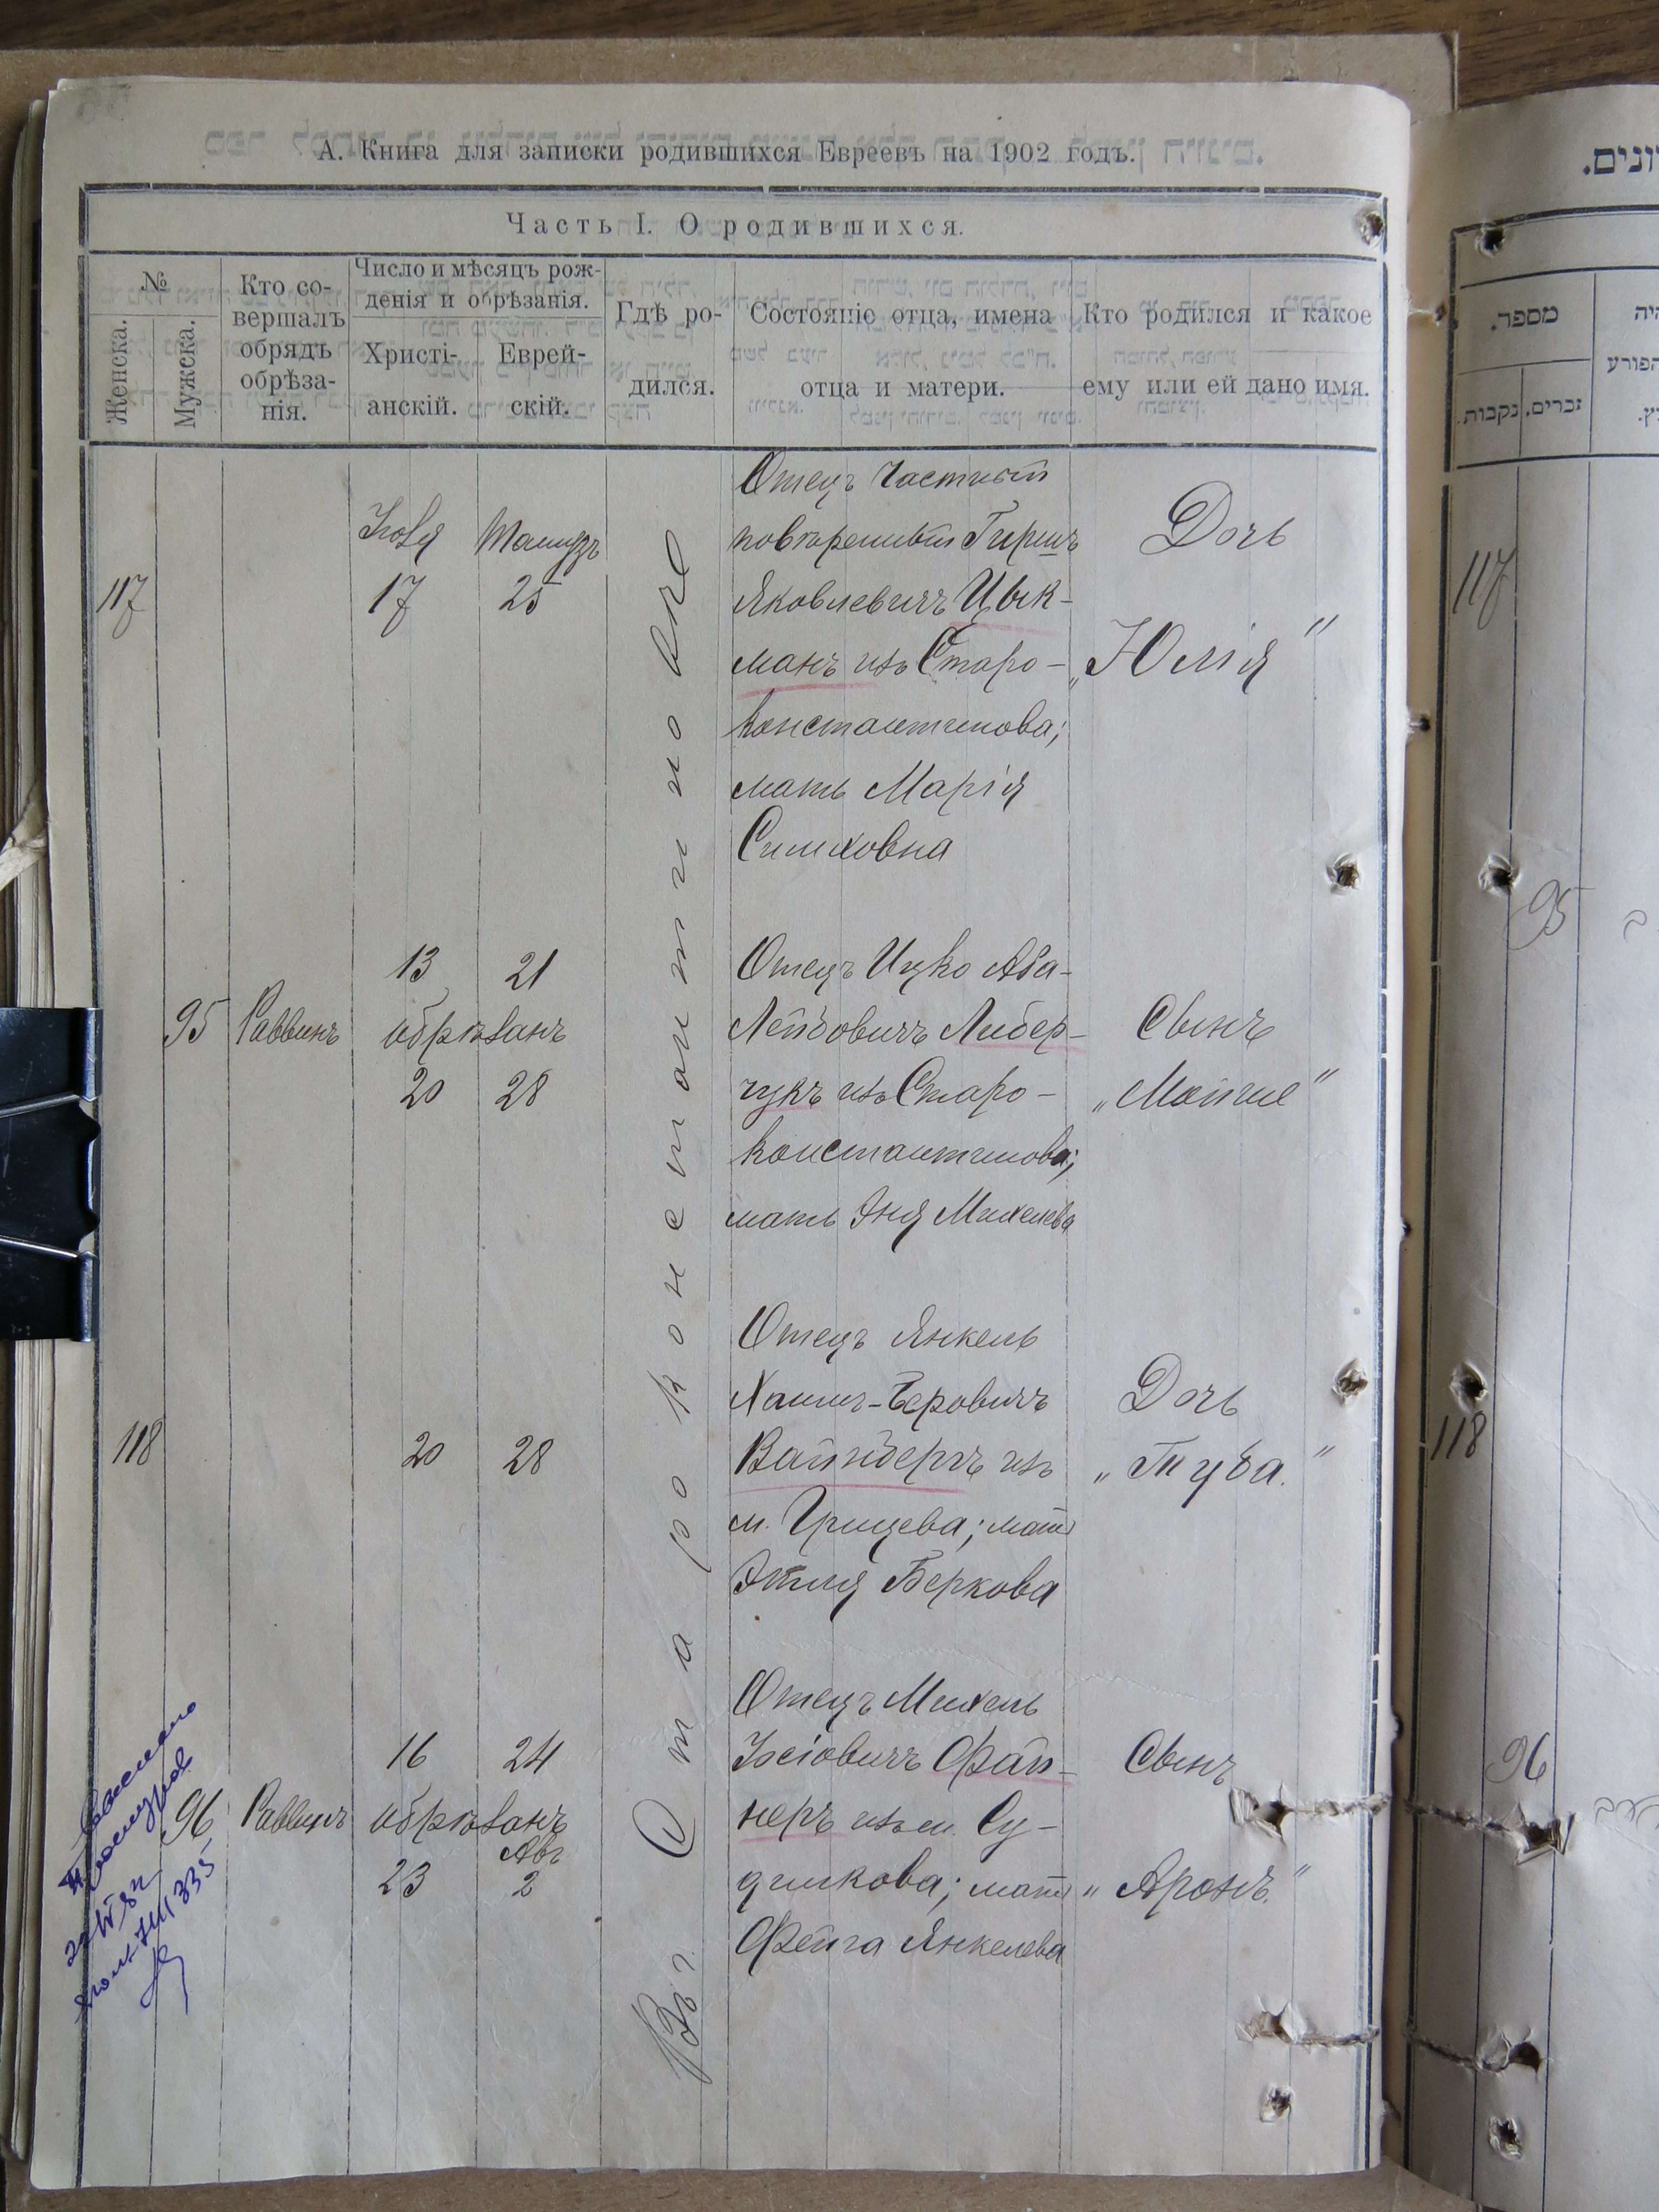 А. Книга для записки родившихся Евреевъ на 1902 годъ.
Часть I. О родившихся.
№
Женска.
Мужеска.
Кто со-
вершалъ
обрядъ
обрѣза-
нія.
Число и мѣсяцъ рож-
денія и обрѣзанія.
Христі-
анскій.
Еврей-
скій.
Гдѣ ро-
дился.
Состояніе отца, имена
отца и матери.
Кто родился и какое
ему или ей дано имя.
Въ г. Староконстантиновѣ
117
Іюля
17
Тамузъ
25
Отецъ частный
повѣренный Гиршъ
Яковлевичъ Цык-
манъ изъ Старо-
константинова;
мать Марія
Симховна
Дочь
„Юлія"
95
Раввинъ
13 21
обрѣзанъ
20 28
Отецъ Ицко Аба-
Лейбовичъ Либер-
чукъ изъ Старо-
константинова;
мать Эня Михелева
Сынъ
„Мойше"
118
20 28
Отецъ Янкель
Хаимъ-Беровичъ
Вайнбергъ изъ
м. Грицева; мать
Этля Беркова
Дочь
„Туба."
96
Раввинъ
16 24
обрѣзанъ
Авг
23 2
Отецъ Михель
Іосіовичъ Фай-
неръ изъ м. Су-
дилкова; мать
Фейга Янкелева
Сынъ
„Аронъ."
מספר.
זכרים.
נקבות.
117
95
118
96